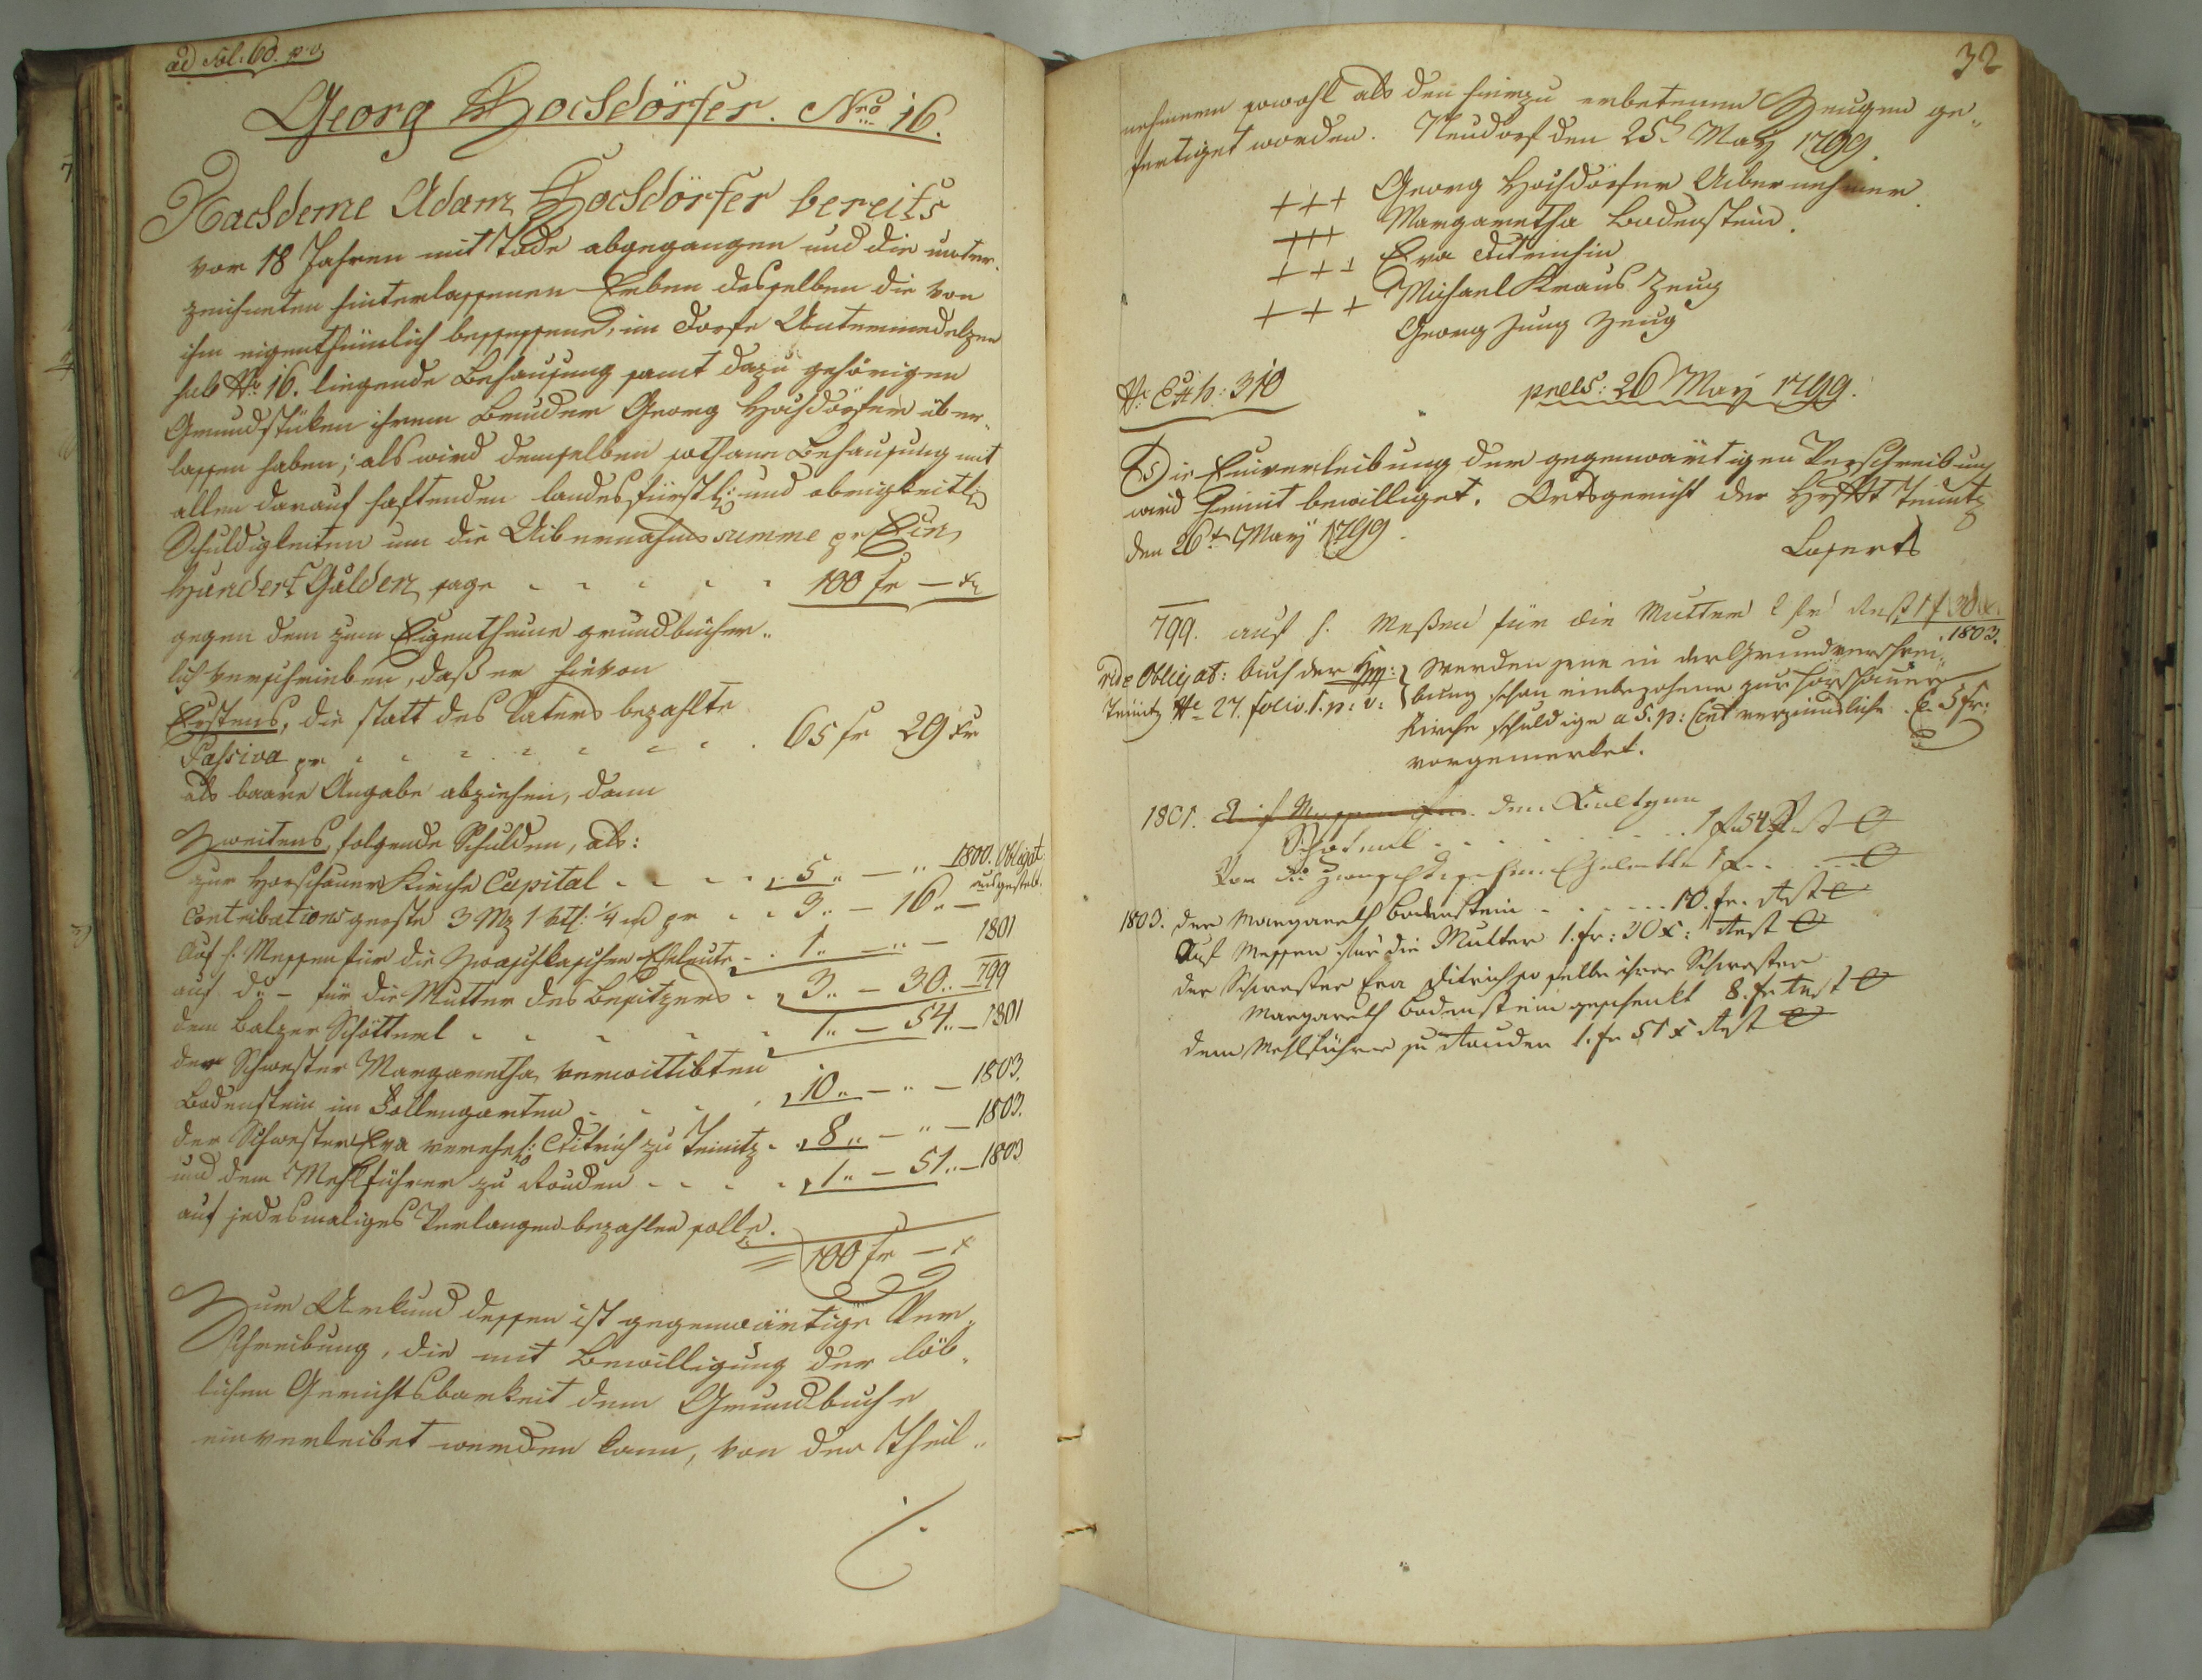 ad Fol: 60. p. v.
Georg Hochdörfer. Nro 16.
Nachdeme Adam Hochdörfer bereits
vor 18 Jahren mit Tode abgegangen und die unter-
zeichneten hinterlassenen Erben desselben die von
ihm eigenthümlich bessessene, im Dorfe Untermedelzen
sub No 16. liegende Behausung samt dazu gehörigen
Grundstüken ihrem Bruder Georg Hochdörfer über-
lassen haben; als wird demselben sothane Behausung mit
allen darauf haftenden landesfürstl: und obrigkeitl:
Schuldigkeiten um die Uibernahmssumme pr Ein
Hundert Gulden sage - - - - - 100 fr — x
gegen dem zum Eigenthume grundbücher-
lich verschrieben, daß er hievon
Erstens, die statt des Vaters bezahlte
Passiva pr - - - - - - - 65 fr 29 xr
als baare Angabe abziehen, dann
Zweitens, folgende Schulden, als:
zur Horschauer Kirche Capital - - - - 5 „ — „ 1800. Obligat:
ausgestelt.
Contributionsgerste 3 Mz 1 vtl: 1/4 pr - - 3 „ — 16 „ —
Auf h. Messen für die Eheleute - - 1 „ — „ — 1801
auf do - für die Mutter des Besitzers - 3 „ — 30 „ — 799
dem Balzer Schötterl - - - - - 1 „ — 54 „ — 1801
der Schwester Margaretha verwittibten
Bodenstein im Sollengarten - - - - 10 „ — „ — 1803.
der Schwester Eva verehel: Ditrich zu Teinitz - 8 „ — „ — 1803.
und dem Mehlführer zu Rouden - - - - 1 „ — 51 „ — 1803
auf jedesmaliges Verlangen bezahlen solle.
100 fr — x
Zur Urkund dessen ist gegenwärtige Ver-
schreibung, die mit Bewilligung der löb-
lichen Gerichtsbarkeit dem Grundbuche
einverleibet werden kann, von den Theil-
32
nehmern sowohl als den hierzu erbetenen Zeugen ge-
fertiget worden. Neudorf den 25t May 1799.
+++ Georg Hochdörfer Uibernehmer.
+++ Margaretha Bodenstein.
+++ Eva Ditrichin
+++ Michael Kraus Zeug
Georg Jung Zeug
No Exh: 310
praes: 26 May 1799.
Die Einverleibung der gegenwärtigen Verschreibung
wird hiemit bewilliget. Ortsgericht der Hrschft Teinitz
den 26t May 1799.
799. auf h. Meßen für die Mutter 2 fr Rest 1 f 30 x
1803.
vide Obligat: buch der Hft: werden jene in der Grundverschrei-
Teinitz No 27. folio. 1. p: v: bung schon einbezohene zur Horschauer
Kirche schuldige a 5. p: Cent verzinnsliche C. 5 fr:
vorgemerket.
1801. Auf Messen dem Baltzer
Schöterl - - - - - - - 1 fr 54 x Rst 0
1803. der Margareth Bodenstein - - - - - 10. fr. Rst 0
Auf Messen für die Mutter 1. fr: 30 x: Rest 0
der Schwester Eva Ditrich so selbe ihrer Schwester
Margareth Bodenstein geschenkt 8. fr Rest 0
dem Mehlführer zu Rouden 1. fr 51 x Rst 0